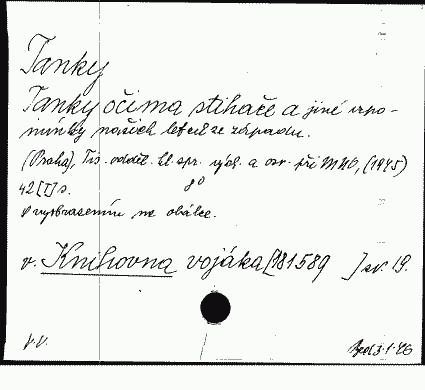 Tanky
Tanky očima stihače a jiné vzpo-
mínky našich letců ze západu.
(Praha), Tis. odděl. hl. spr. vých. a osv. při MNO, (1945)
42 [I] s. 8°
S vyobrazením na obálce.
v. Knihovna vojáka [381589 ] sv. 19.
3.1.46